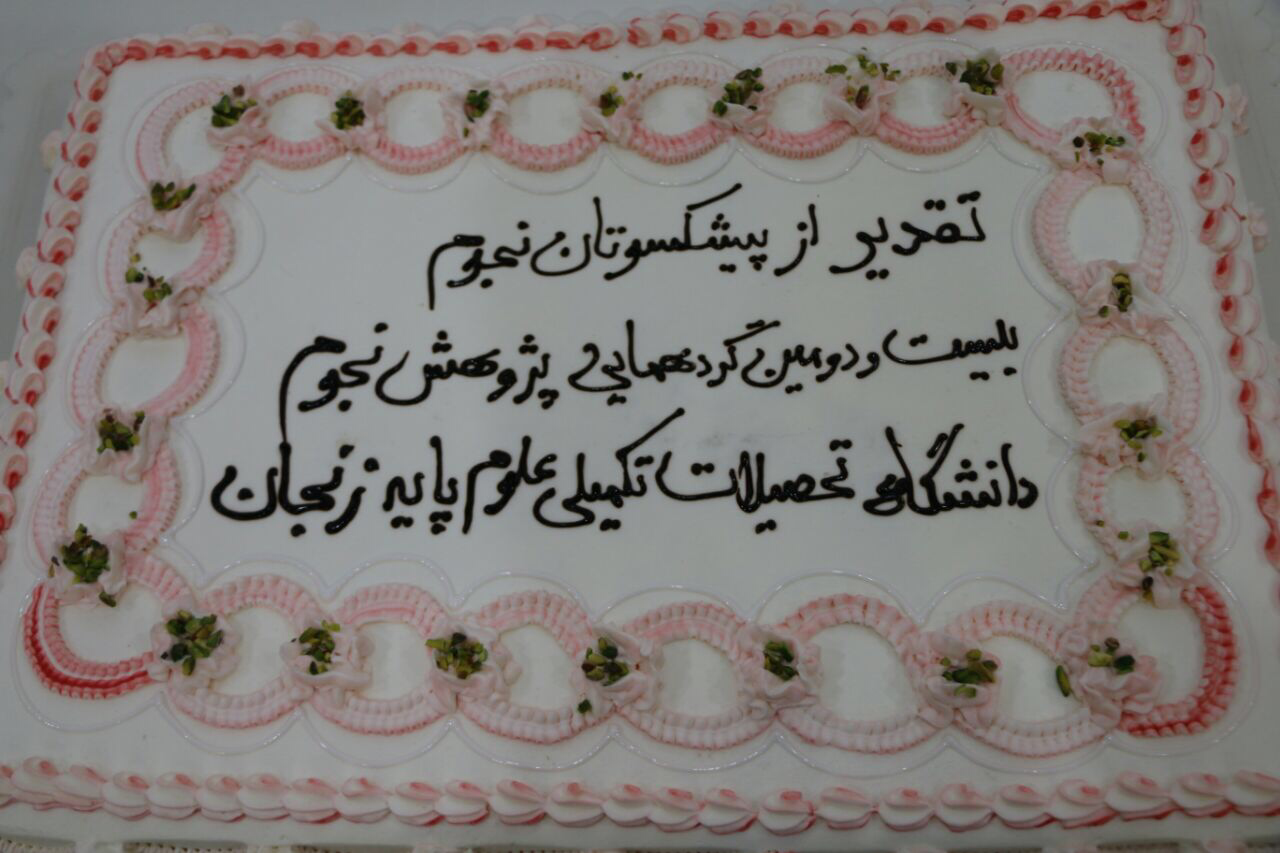 تقدیر از پیشکسوتان نجوم
بیست و دومین گردهمایی پژوهش نجوم
دانشگاه تحصیلات تکمیلی علوم پایه زنجان